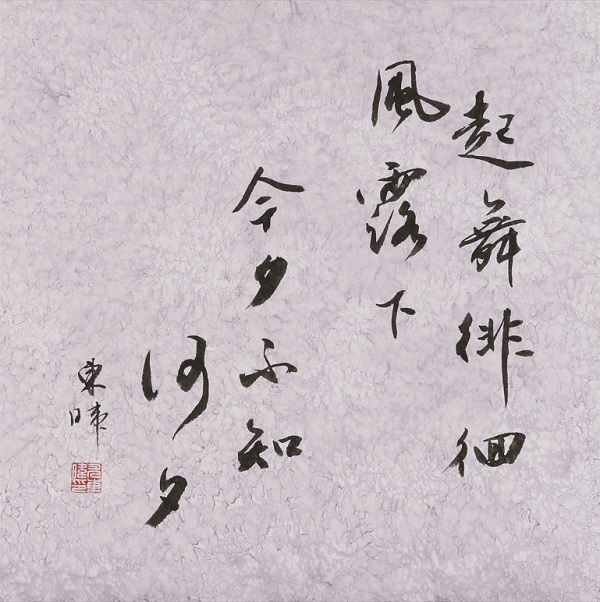 起舞徘徊
風露下
今夕不知
何夕
東暐